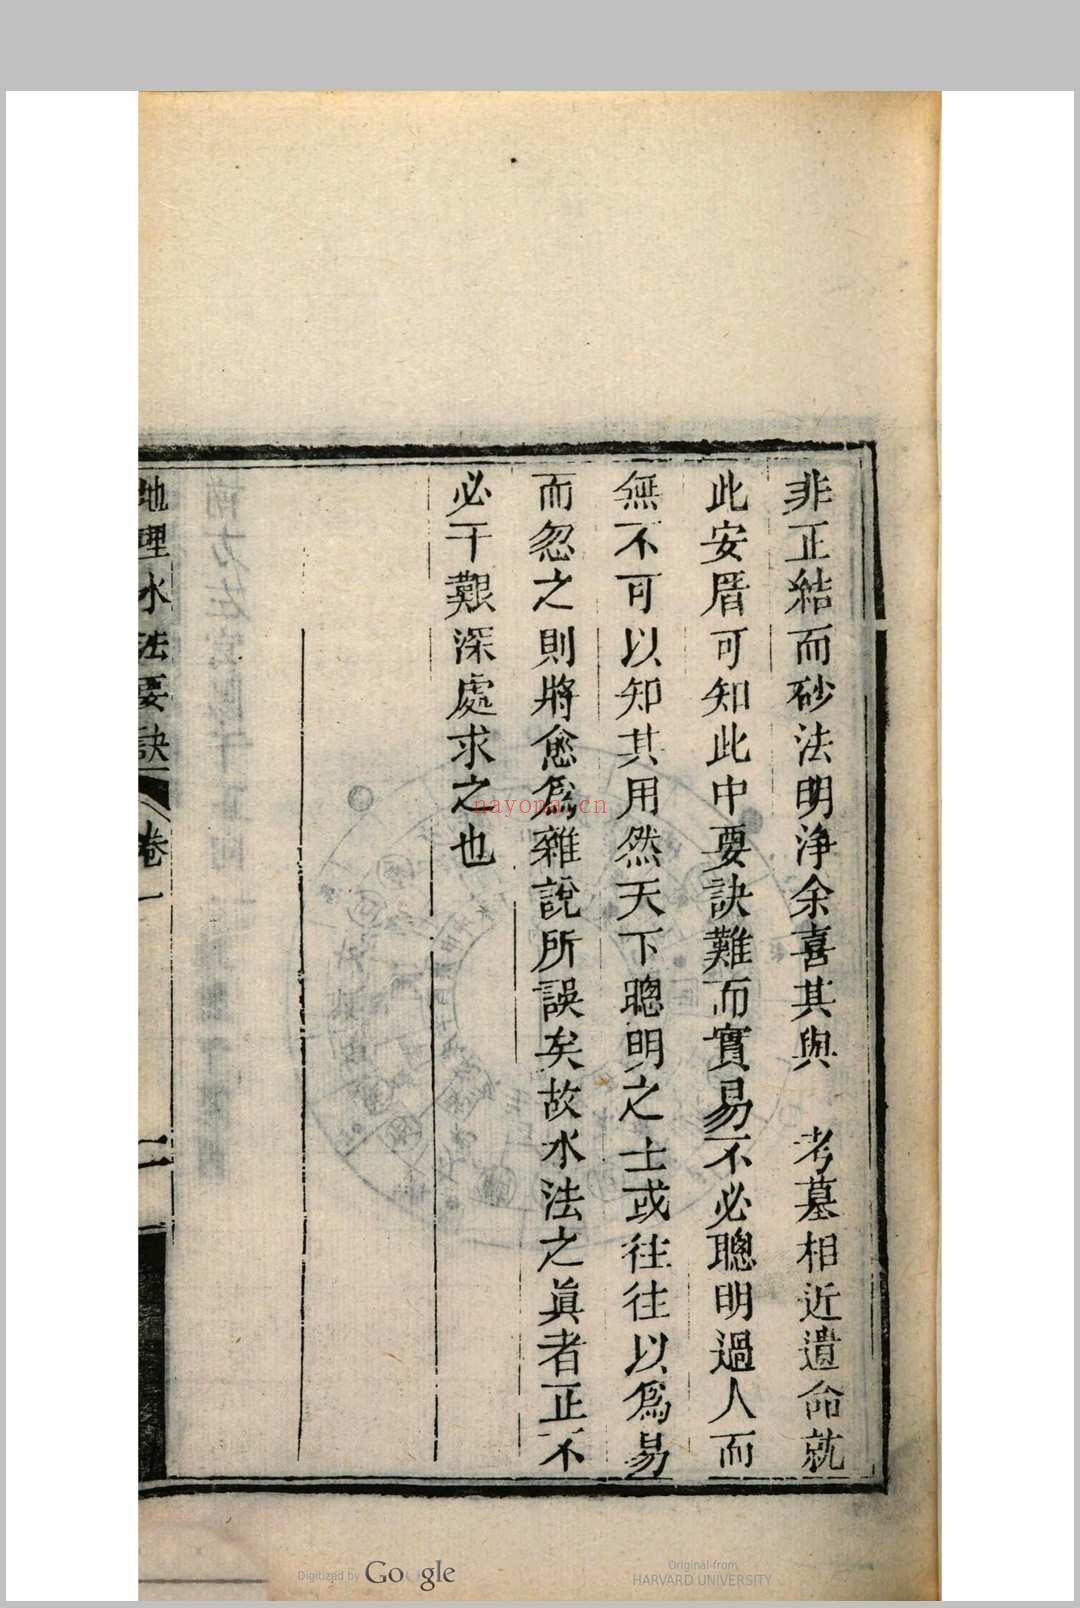 非正結而砂法明浄余喜其與　考墓相近遺命就
此安厝可知此中要訣難而實易不必聰明過人而
無不可以知其用然天下聰明之士或往往以爲易
而忽之則將愈爲雜說所誤矣故水法之眞者正不
必于艱深處求之也
地理水法要訣　卷一　二
nayona.cn
Digitized by Google
Original from
HARVARD UNIVERSITY